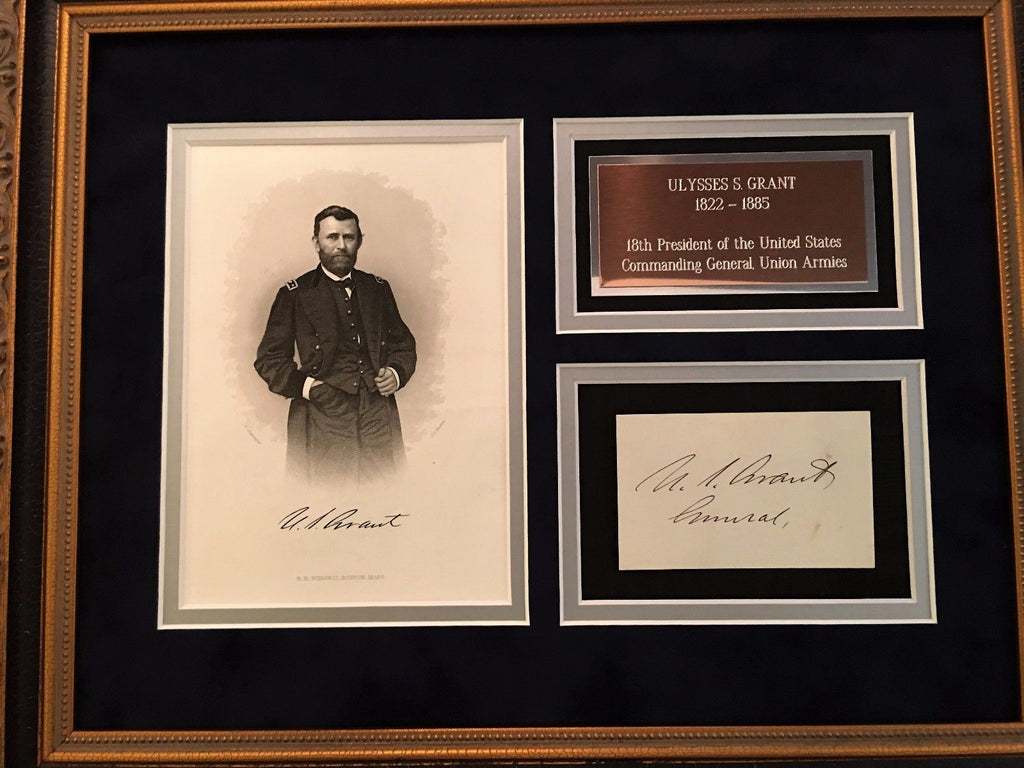 U. S. Grant
B. B. RUSSELL, BOSTON, MASS.
ULYSSES S. GRANT
1822 – 1885
18th President of the United States
Commanding General, Union Armies
U. S. Grant
General,